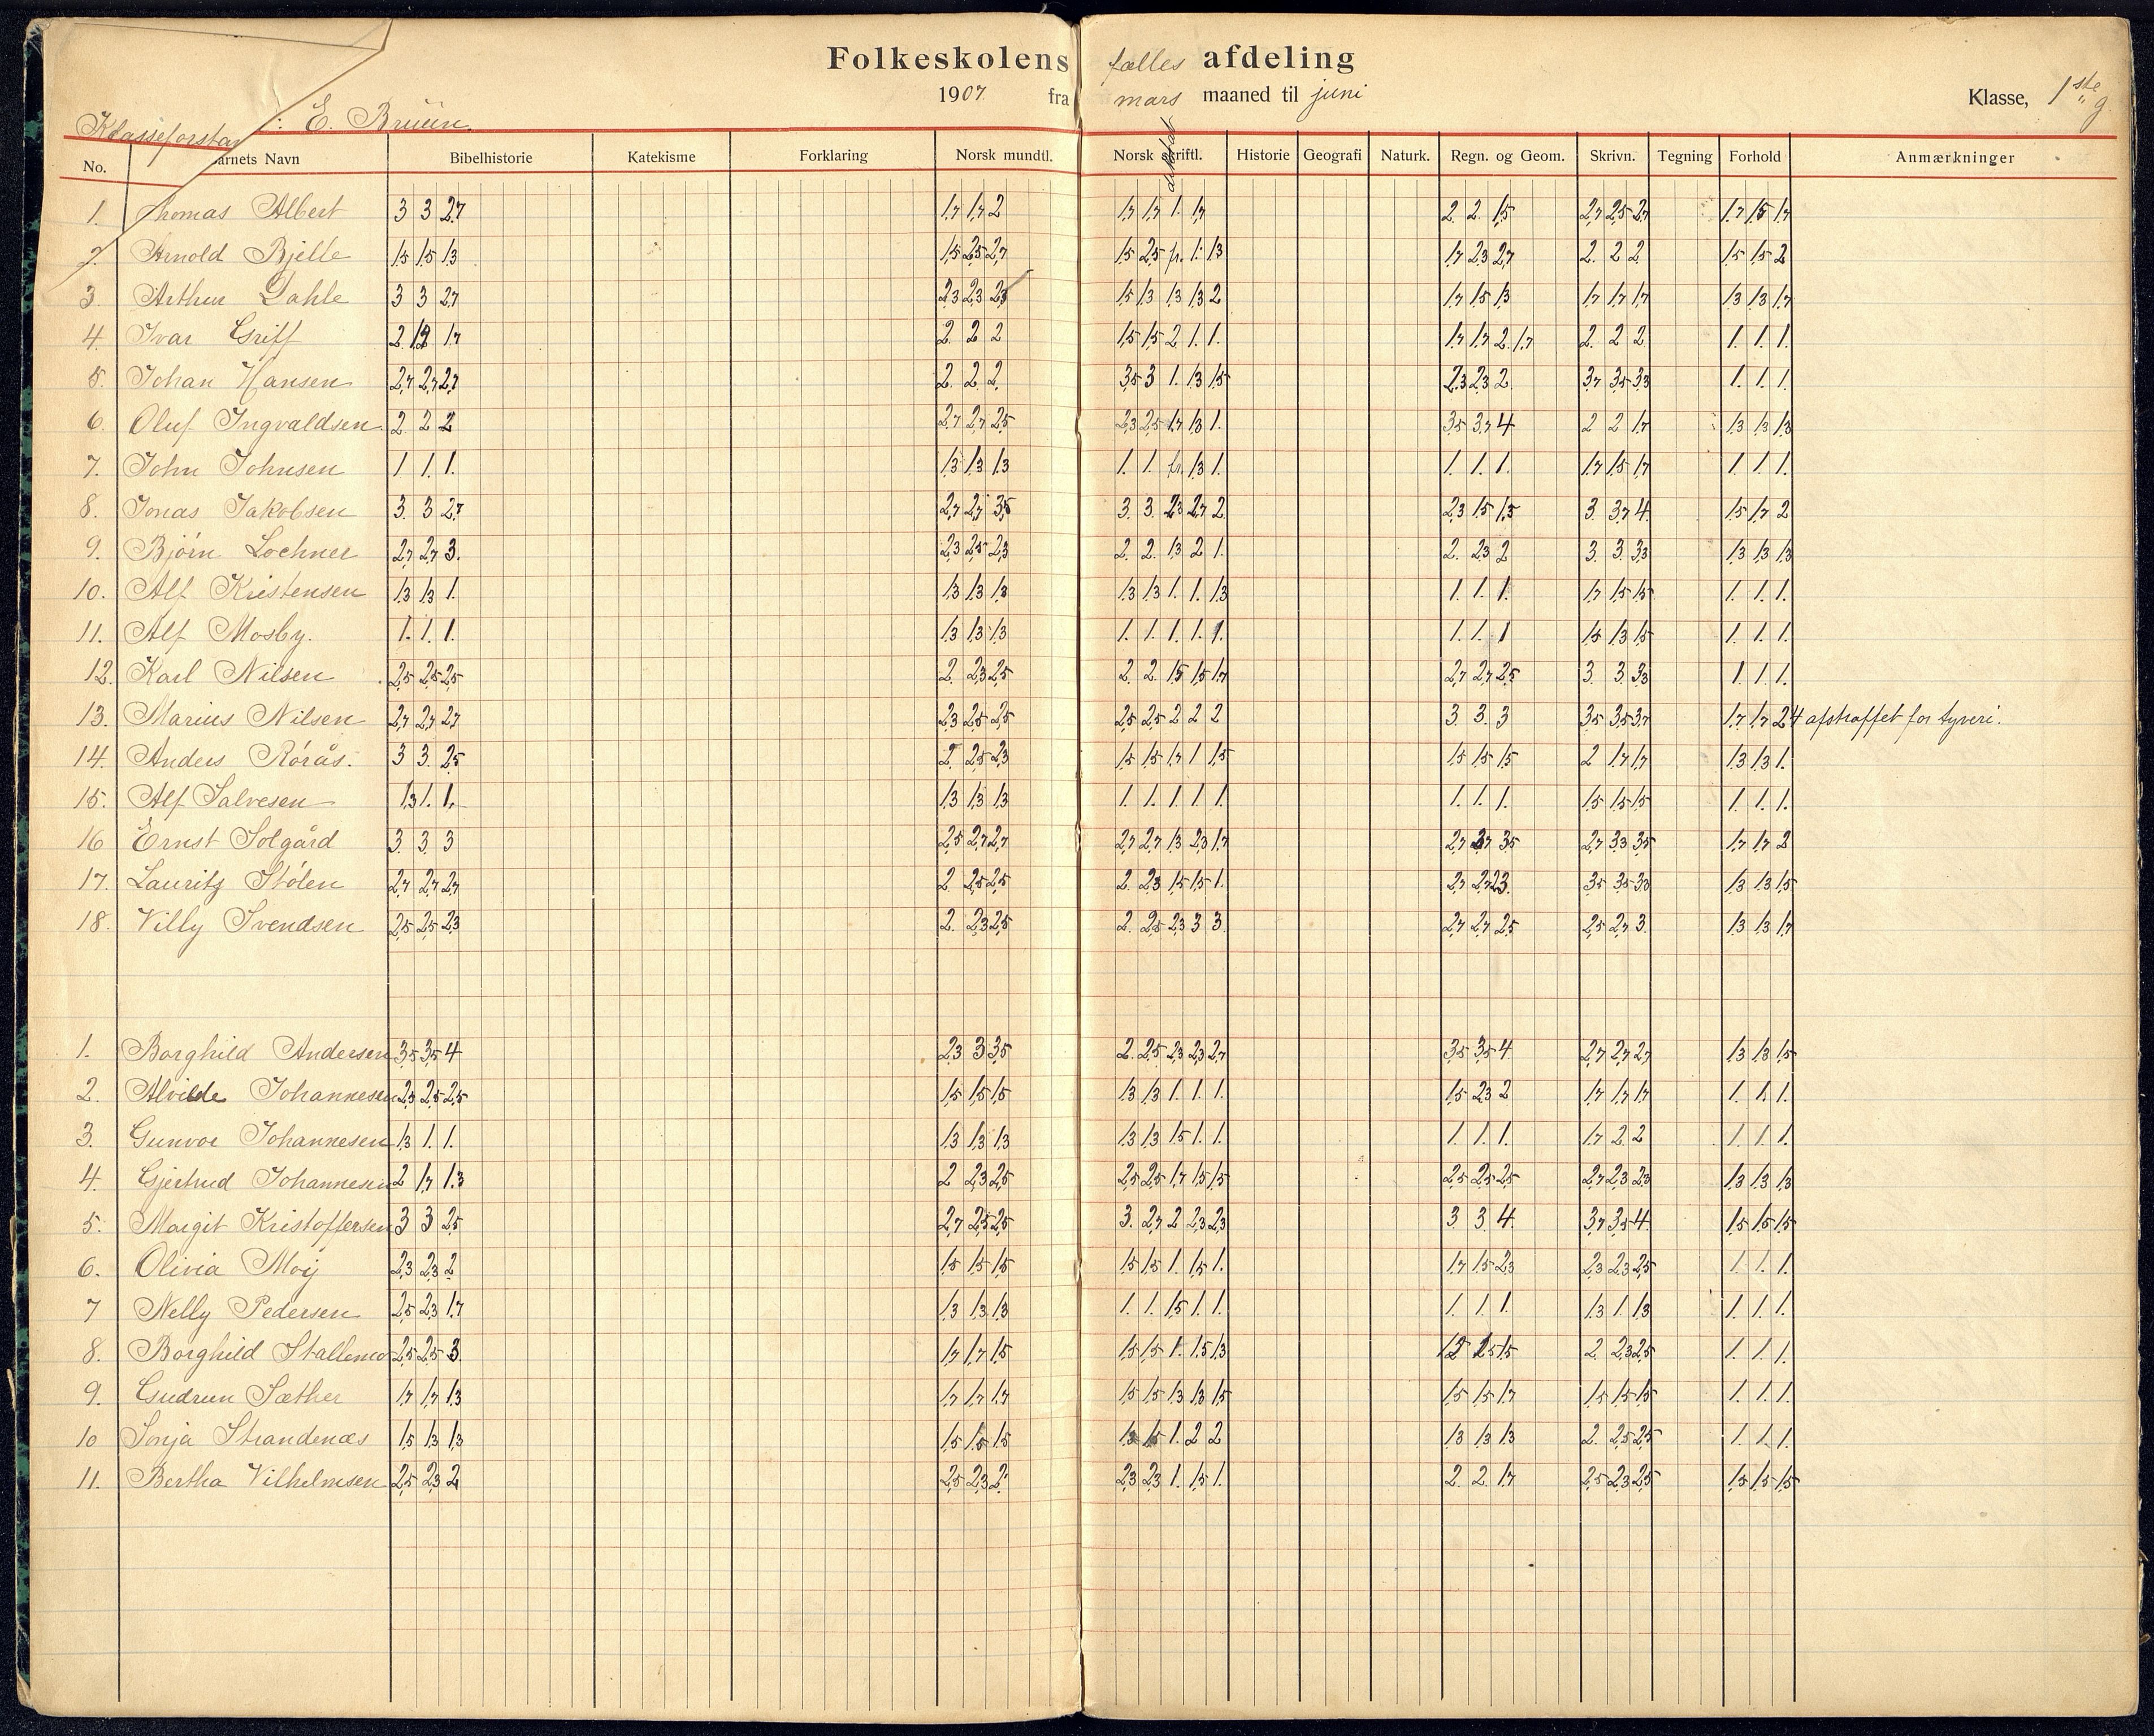 Folkeskolens fælles afdeling
1907 fra mars maaned til juni Klasse, 1ste g.
Klasseforstan : E. Bruün.
No. arnets Navn Bibelhistorie Katekisme Forklaring Norsk mundtl. Norsk skriftl. diktat Historie Geografi Naturk. Regn. og Geom. Skrivn. Tegning Forhold Anmærkninger
1. Thomas Albert 3 3 2,7 1,7 1,7 2 1,7 1,7 1. 1,7 2. 2. 1,5 2,7 2,5 2,7 1,7 1,5 1,7
2. Arnold Bjelle 1,5 1,5 1,3 1,5 2,5 2,7 1,5 2,5 fr. 1. 1,3 1,7 2,3 2,7 2. 2 2 1,5 1,5 2
3. Arthur Dahle 3 3 2,7 2,3 2,3 2,3 1,5 1,3 1,3 1,3 2 1,7 1,5 1,3 1,7 1,7 1,7 1,3 1,3 1,7
4. Ivar Griff 2 1,7 2 2 2 1,5 1,5 2 1. 1. 1,7 1,7 2. 1,7 2. 2 2 1. 1. 1.
5. Johan Hansen 2,7 2,7 2,7 2. 2. 2. 3,5 3 1. 1,3 1,5 2,3 2,3 2 3,7 3,5 3,3 1. 1. 1.
6. Oluf Ingvaldsen 2. 2 2 2,7 2,7 2,5 2,3 2,5 1,7 1,3 1. 3,5 3,7 4 2 2 1,7 1,3 1,3 1,3
7. John Johnsen 1 1. 1. 1,3 1,3 1,3 1. 1. fr. 1,3 1. 1. 1. 1. 1,7 1,5 1,7 1. 1. 1.
8. Jonas Jakobsen 3. 3 2,7 2,7 2,7 3,5 3. 3. 2,3 2,7 2. 2,3 1,5 1,5 3 3,7 4. 1,5 1,7 2
9. Bjørn Lochner 2,7 2,7 3. 2,3 2,5 2,3 2. 2. 1,3 2 1. 2. 2,3 2 3 3. 3,3 1,3 1,3 1,3
10. Alf Kristensen 1,3 1,3 1. 1,3 1,3 1,3 1,3 1,3 1. 1. 1,3 1. 1. 1. 1,7 1,5 1,5 1. 1. 1.
11. Alf Mosby. 1. 1. 1. 1,3 1,3 1,3 1. 1. 1. 1. 1. 1. 1. 1 1,5 1,3 1,5 1. 1. 1.
12. Karl Nilsen 2,5 2,5 2,5 2. 2,3 2,5 2. 2. 1,5 1,5 1,7 2,7 2,7 2,5 3. 3. 3,3 1. 1. 1.
13. Marius Nilsen 2,7 2,7 2,7 2,3 2,5 2,5 2,5 2,5 2 2 2 3 3. 3 3,5 3,5 3,7 1,7 1,7 2 4 afstraffet for tyveri.
14. Anders Rörås. 3 3 2,5 2, 2,5 2,3 1,5 1,5 1,7 1 1,5 1,5 1,5 1,5 2 1,7 1,7 1,3 1,3 1.
15. Alf Salvesen 1,3 1. 1. 1,3 1,3 1,3 1. 1. 1. 1. 1. 1. 1. 1. 1,5 1,5 1,5 1. 1. 1.
16 Ernst Solgård 3. 3. 3 2,5 2,7 2,7 2,7 2,7 1,3 2,3 1,7 2,7 3,5 2,7 3,3 3,5 1,7 1,7 2
17. Lauritz Stölen 2,7 2,7 2,7 2. 2,5 2,5 2. 2,3 1,5 1,5 1. 2,7 2,7 2,3. 3,5 3,5 3,3 1,3 1,3 1,5
18. Villy Svendsen 2,5 2,5 2,3 2. 2,3 2,5 2. 2,5 2,3 3 3. 2,7 2,7 2,5 2,5 2,7 3. 1,3 1,3 1,7
1. Borghild Andersen 3,5 3,5 4 2,3 3 3,5 2. 2,5 2,3 2,3 2,7 3,5 3,5 4 2,7 2,7 2,7 1,3 1,3 1,5
2. Alvilde Johannesen 2,3 2,5 2,5 1,5 1,5 1,5 1,3 1,3 1. 1. 1. 1,5 2,3 2 1,7 1,7 1,7 1. 1. 1.
3. Gunvor Johannesen 1,3 1. 1. 1,3 1,3 1,3 1,3 1,3 1,5 1. 1. 1. 1. 1. 1,7 2 2 1. 1. 1.
4. Gjertrud Johannesen 2 1,7 1,3 2 2,3 2,5 2,5 2,5 1,7 1,5 1,5 2,5 2,5 2,5 2,7 2,3 2,3 1,3 1,3 1,3
5. Margit Kristoffersen 3 3 2,5 2,7 2,5 2,5 3. 2,7 2 2,3 2,3 3 3 4. 3,7 3,5 4. 1,5 1,5 1,5
6. Olivia Moij 2,3 2,3 2 1,5 1,5 1,5 1,5 1,5 1. 1,5 1. 1,7 1,5 2,3 2,3 2,3 2,5 1. 1. 1.
7 Nelly Pedersen 2,5 2,3 1,7 1,3 1,3 1,3 1. 1. 1,5 1. 1. 1. 1. 1. 1,3 1. 1,3 1. 1. 1.
8. Borghild Stallemo 2,5 2,5 3 1,7 1,7 1,5 1,5 1,5 1. 1,5 1,3 1,5 2. 2,3 2,5 1. 1. 1.
9. Gudrun Sæther 1,7 1,7 1,3 1,7 1,7 1,7 1,5 1,5 1,3 1,3 1,5 1,5 1,5 1,7 1,5 1,5 1,5 1. 1. 1.
10 Sonja Strandenæs 1,5 1,3 1,3 1,5 1,5 1,5 1,5 1. 2 2 1,3 1,3 1,3 2. 2,5 2,5 1. 1. 1.
11. Bertha Vilhelmsen 2,5 2,3 2 2,5 2,3 2. 2,3 2,3 1. 1,5 1. 2. 2. 1,7 2,5 2,3 2,5 1,5 1,5 1,5